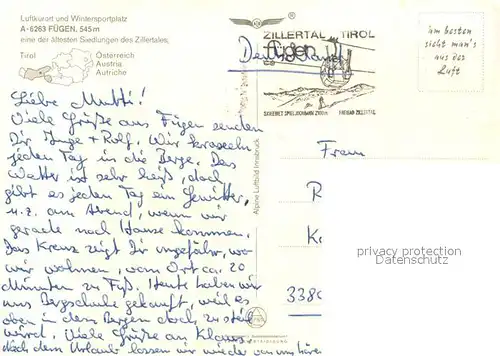 Luftkurort und Wintersportplatz
A-6263 FÜGEN, 545m
eine der ältesten Siedlungen des Zillertales
Tirol
Österreich
Austria
Autriche
ZILLERTAL TIROL
fügen
SKIGEBIET SPIELJOCHBAHN 2100m
Deutschland
am besten
sieht man's
aus der
Luft
Liebe Mutti!
Viele Grüße aus Fügen senden
Dir Inge + Rolf. Wir kraxeln
jeden Tag in die Berge. Das
Wetter ist sehr heiß, doch
gibt es jeden Tag ein Gewitter,
u.z. am Abend, wenn wir
gerade nach Hause kommen.
Das Kreuz zeigt Dir ungefähr, wo
wir wohnen, vom Ort ca. 20
Minuten zu Fuß. Heute haben wir
uns Bergschuhe gekauft, weil es
oben in den Bergen doch zu steil
würd. Viele Grüße an Klaus
Nach dem Urlaub lassen wir wieder von uns hören
Alpine Luftbild Innsbruck
Frau
R
K
338
privacy protection
Datenschutz